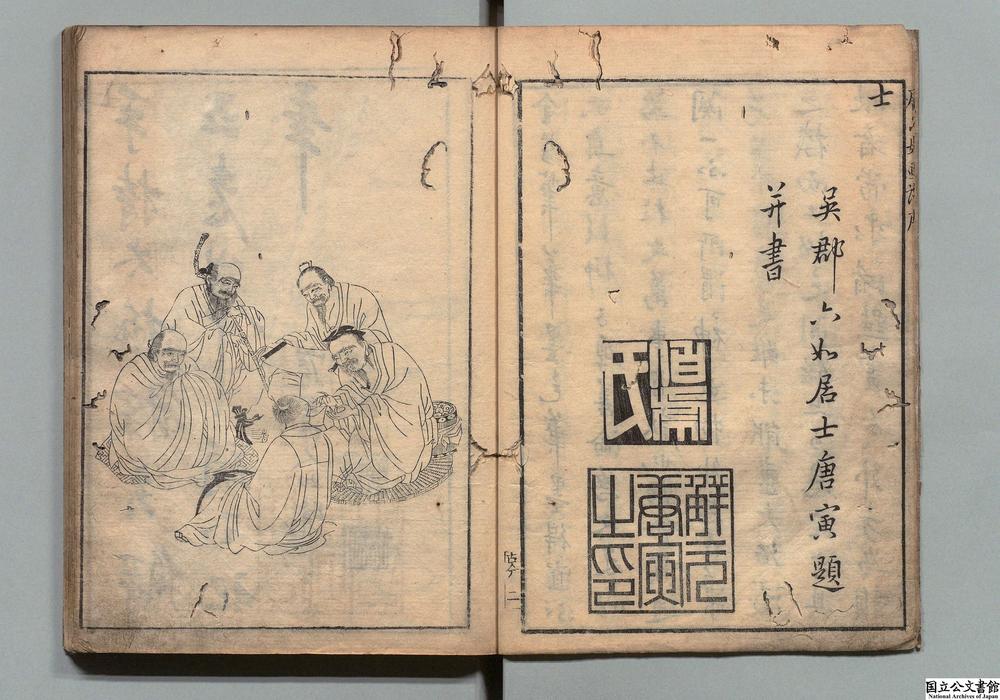 士
吳郡六如居士唐寅題
并書
伯虎
氏
解元
唐寅
之印
二
国立公文書館
National Archives of Japan